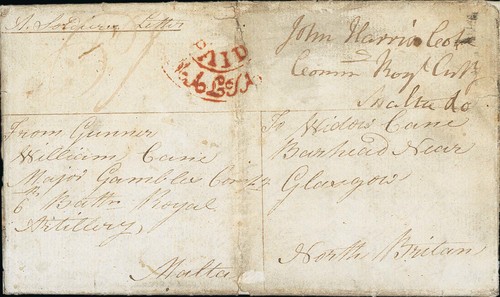 A Soldiers Letter
PAID
MALTA
John Harris Col
Comm Roy Art
Malta
From Gunner
William Cane
Major Gambles Comp
6 Battn Royal
Artillery
Malta
To Widow Cane
Barhead Near
Glasgow
North Britan